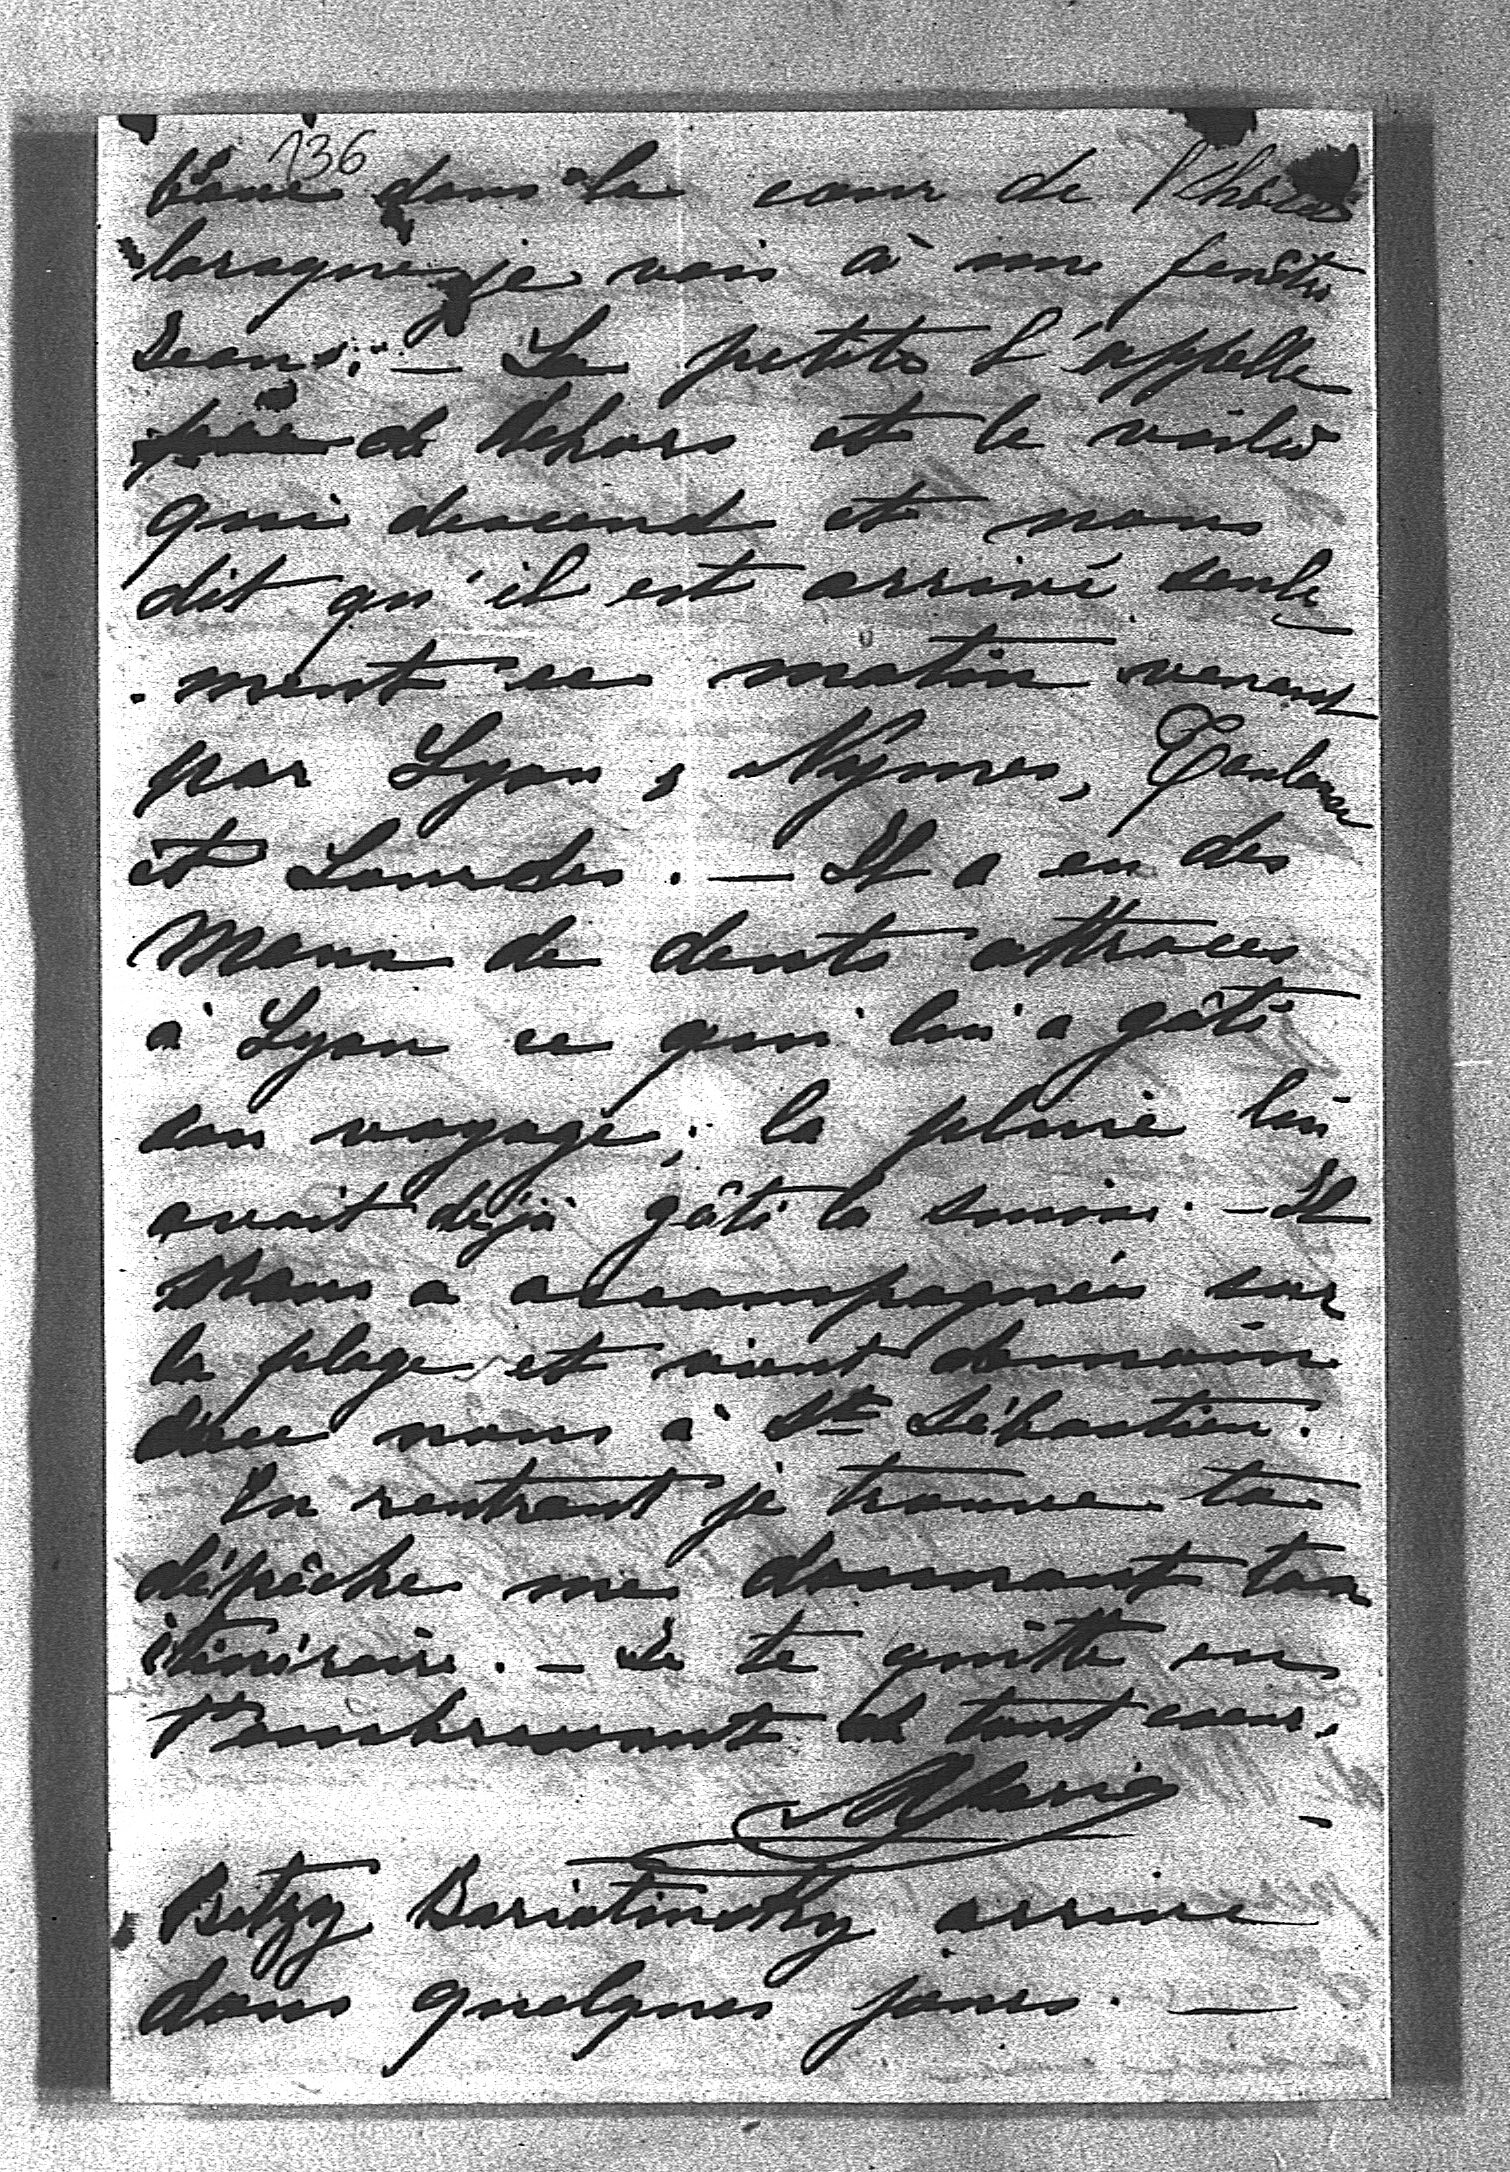 136
dans la cour de l'hôtel
lorsque je vois à une fenêtre
Jean. — La petite l'appelle
de dehors et le voilà
qui descend et nous
dit qu'il est arrivé seule
ment ce matin venant
par Lyon, Nymes, Toulouse
et Lourdes. — Il a eu des
maux de dents attroces
à Lyon ce qui lui a gâté
son voyage, la pluie lui
avait déjà gâté la Suisse. — Il
nous a accompagnées sur
la plage et vient demain
avec nous à St Sébastien.
En rentrant je trouve ta
dépêche me donnant ton
itinéraire. — Je te quitte en
t'embrassant de tout cœur.
Marie
Betzy Bariatinsky arrive
dans quelques jours. —